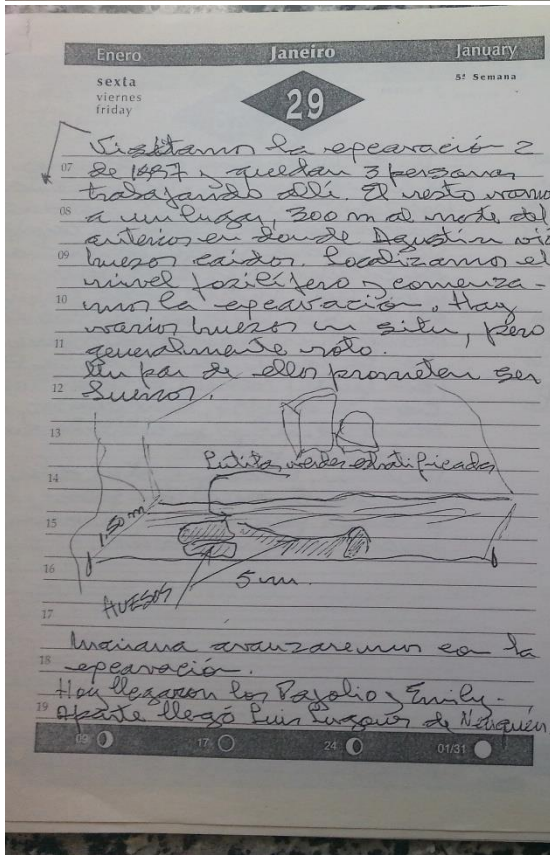 Enero Janeiro January
sexta
viernes
friday
29
5ª Semana
Visitamos la excavación 2
07 de 1997 y quedan 3 personas
trabajando allí. El resto vamos
08 a un lugar, 300 m al norte del
anterior en donde Agustín vió
09 huesos caidos. Localizamos el
nivel fosilífero y comenza-
10 mos la excavación. Hay
varios huesos in situ, pero
11 generalmente roto.
Un par de ellos prometen ser
12 buenos.
13
Lutitas verdes estratificadas
14
15
1,50 m
16
5 m.
HUESOS
17
Mañana avanzaremos con la
18 excavación.
Hoy llegaron los y Emily.
19 Aparte llegó Luis de Neuquén
09 17 24 01/31